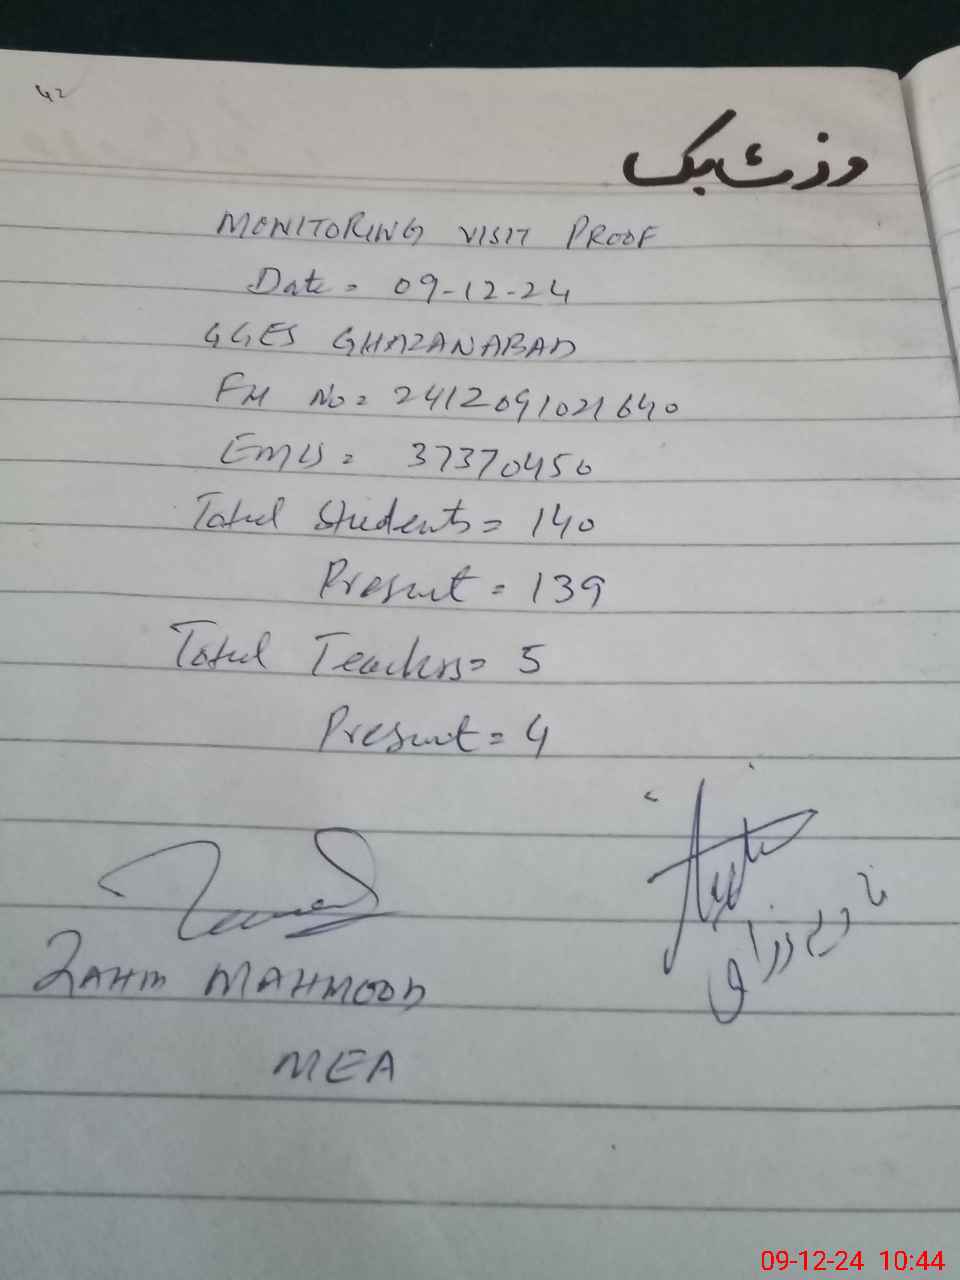 42
وزٹ بک
MONITORING VISIT PROOF
Date = 09-12-24
GGES GHAZANABAD
FM No = 2412091021640
EMIS = 37370450
Total Students = 140
Present = 139
Total Teachers = 5
Present = 4
MAHMOOD
MEA
09-12-24 10:44